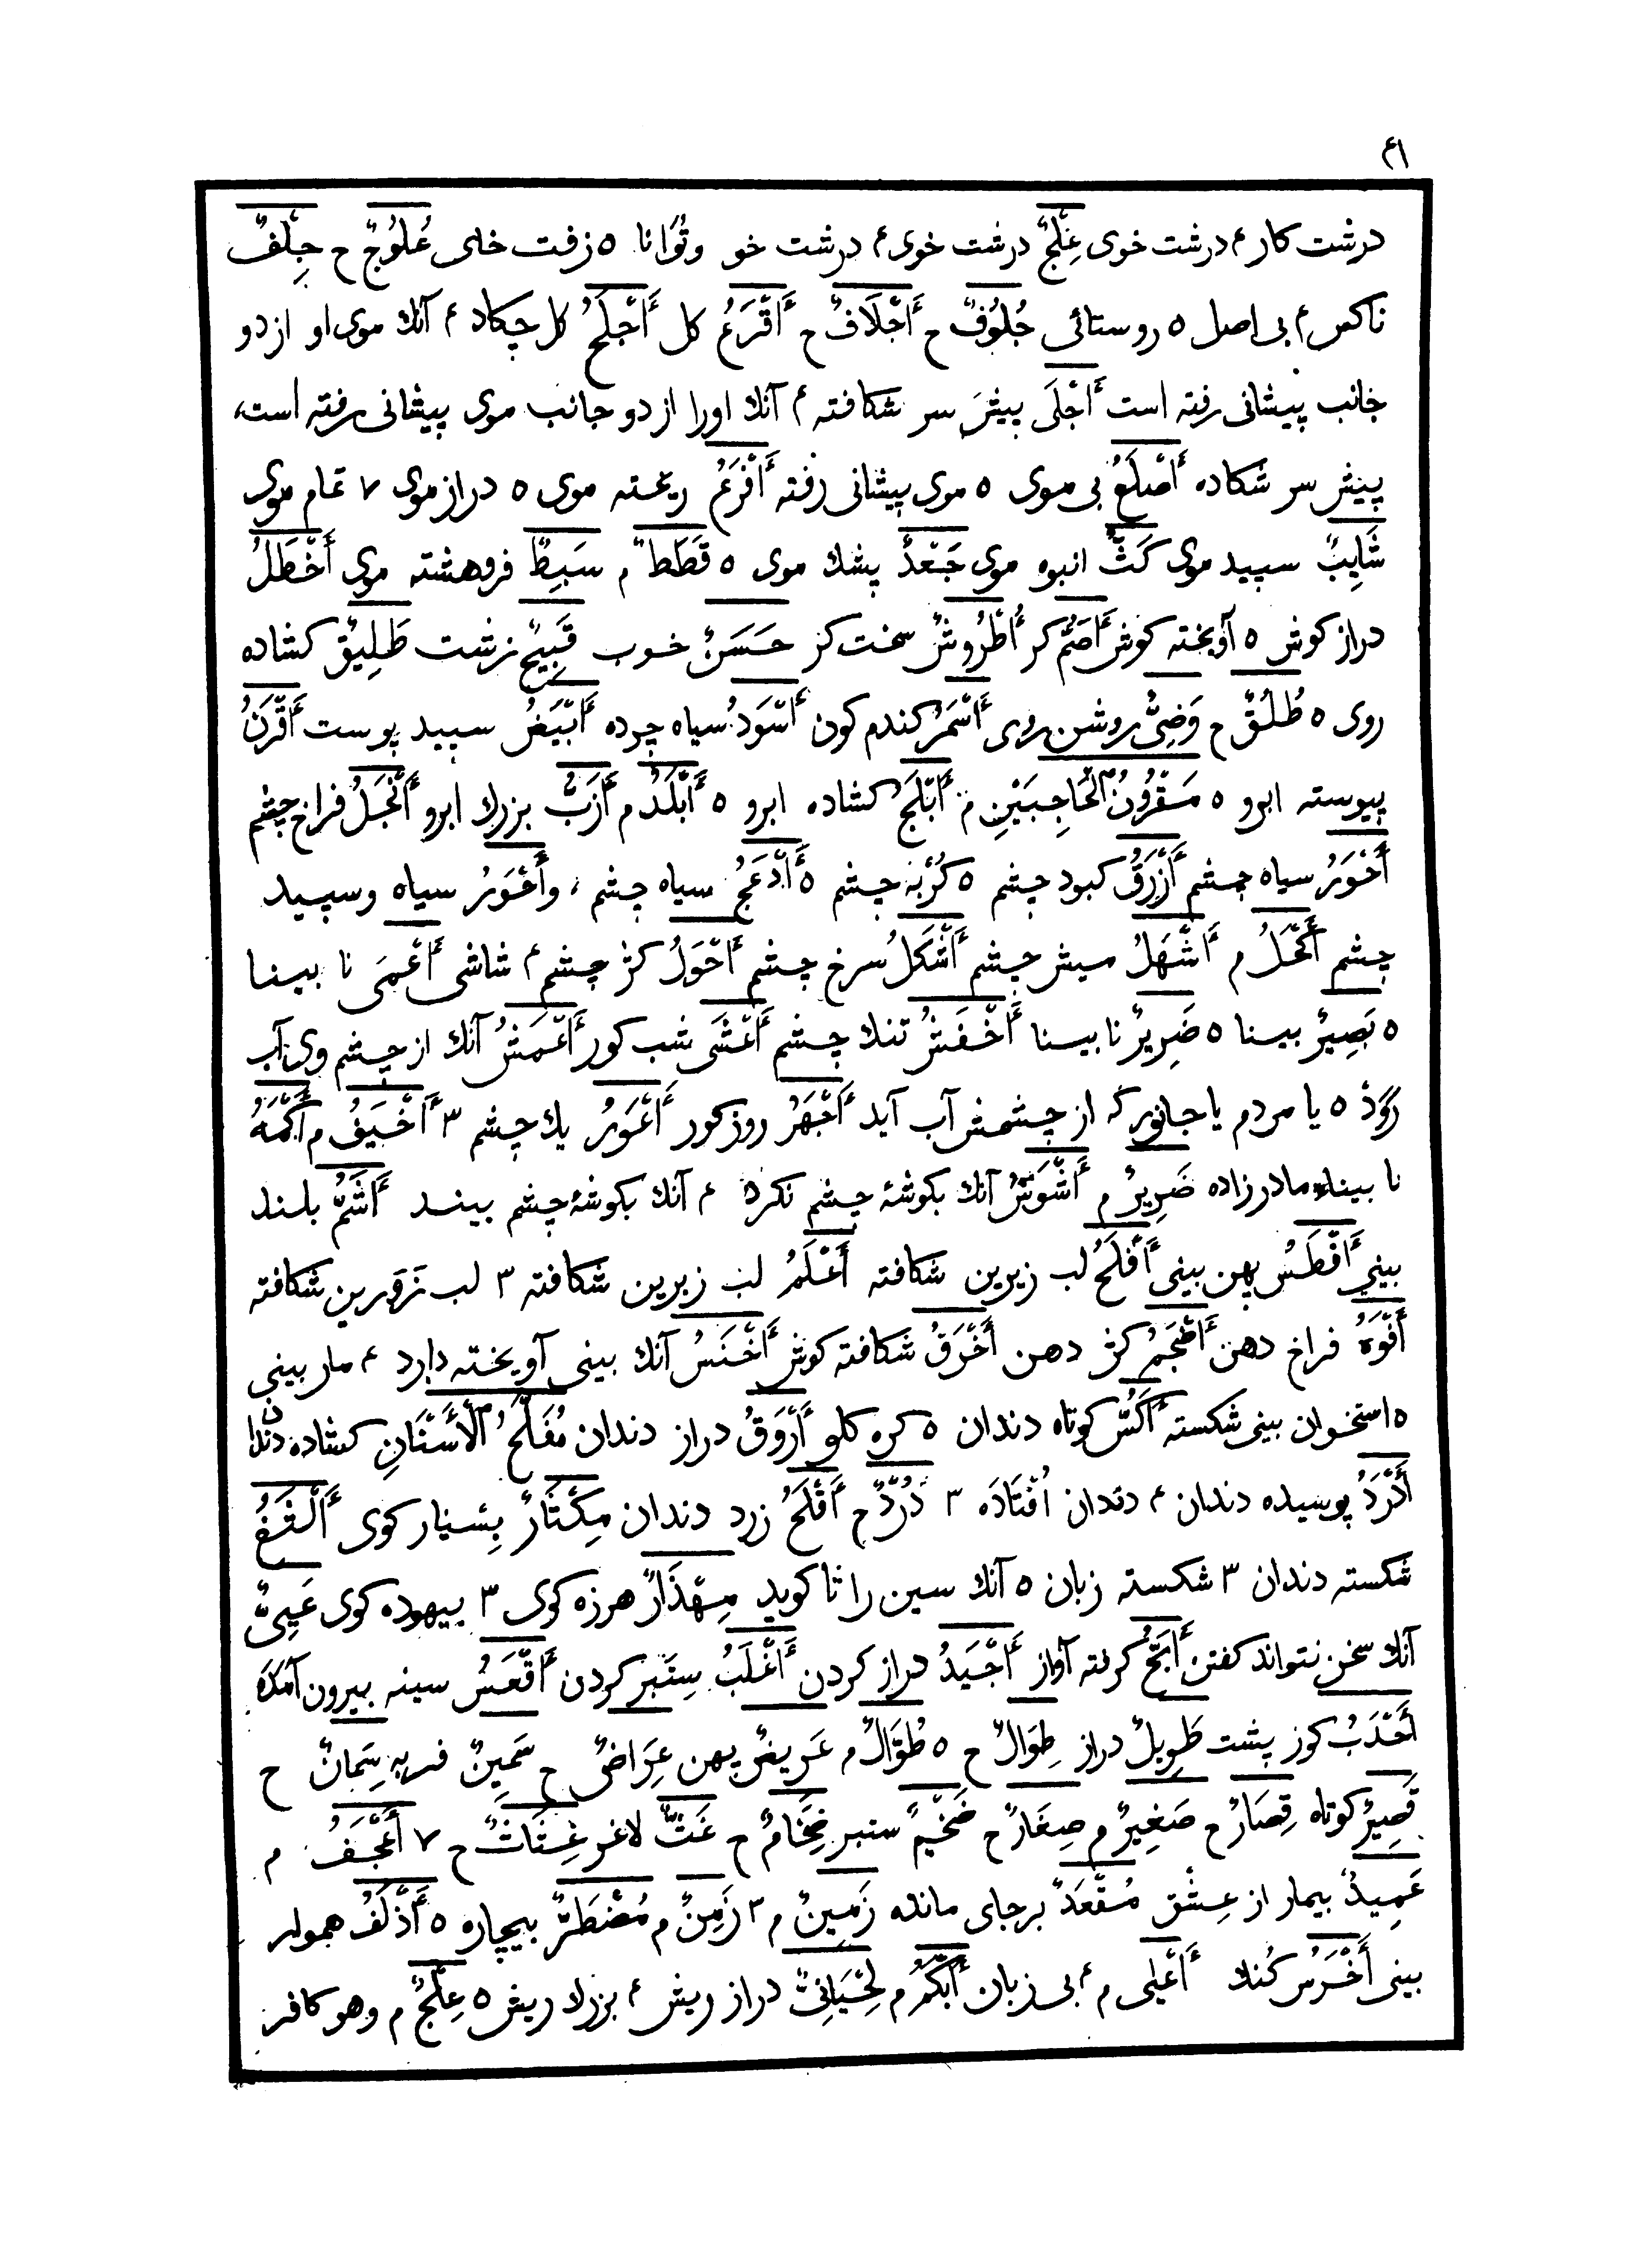 ۴۱
درشت کار ۴ درشت خوی عِلْجٌ درشت خوی ۴ درشت خو وتُوَانا ۵ زفت خلی عُلُوجٌ ح جِلْفٌ
ناکس ۴ بی اصل ۵ روستائی جُلُوفٌ ح أَجْلَافٌ ح أَقْرَعُ کل أَجْلَحُ کل چکاد ۴ آنك موی او از دو
جانب پیشانی رفته است أَجْلَى پیش سر شکافته ۴ آنك اورا از دو جانب موی پیشانی رفته است،
پیش سر شکاده أَصْلَعُ بی موی ۵ موی پیشانی رفته أَفْرَعُ ریخته موی ۵ دراز موی ۷ تمام موی
شَایِبٌ سپید موی كَثٌّ انبوه موی جَعْدٌ پشك موی ۵ قَطَطٌ م سَبِطٌ فروهشته موی أَخْطَلُ
دراز کوش ۵ آویخته کوش أَصَمُّ کر أُطْرُوشٌ سخت کر حَسَنٌ خوب قَبِيحٌ زشت طَلِيقٌ کشاده
روی ۵ طُلُقٌ ح وَضِيٌّ روشن روی أَسْمَرُ کندم کون أَسْوَدُ سیاه چرده أَبْيَضُ سپید پوست أَقْرَنُ
پیوسته ابرو ۵ مَقْرُونُ الْحَاجِبَيْنِ م أَبْلَجُ کشاده ابرو ۵ أَبْلَدُ م أَزَبُّ بزرك ابرو أَنْجَلُ فراخ چشم
أَحْوَرُ سیاه چشم أَزْرَقُ کبود چشم ۵ کُرْبَه چشم ۵ أَدْعَجُ سیاه چشم ، وأَحْوَرُ سیاه وسپید
چشم أَكْحَلُ م أَشْهَلُ میش چشم أَشْكَلُ سرخ چشم أَحْوَلُ کژ چشم ۴ شاشی أَعْمَى نا بینا
۵ بَصِيرٌ بینا ۵ ضَرِيرٌ نا بینا أَخْفَشُ تنك چشم أَعْشَى شب کور أَعْمَشُ آنك از چشم وی آب
رَوَدْ ۵ یا مردم یا جانور که از چشمش آب آید أَجْهَرُ روز کور أَعْوَرُ یك چشم ۳ أَخْيَفُ م أَكْمَهُ
نا بیناء مادر زاده ضَرِيرٌ م أَشْوَسُ آنك بکوشۀ چشم نکرد ۴ آنك بکوشۀ چشم بیند أَشَمُّ بلند
بینی أَفْطَسُ پهن بینی أَفْلَحُ لب زیرین شکافته أَعْلَمُ لب زبرین شکافته ۳ لب زَوَرین شکافته
أَفْوَهُ فراخ دهن أَضْجَمُ کژ دهن أَخْرَقُ شکافته کوش أَخْنَسُ آنك بینی آویخته دارد ۴ مار بینی
۵ استخوان بینی شکسته أَكَسُّ کوتاه دندان ۵ کره کلو أَرْوَقُ دراز دندان مُفَلَّجُ الْأَسْنَانِ کشاده دندان
أَدْرَدُ پوسیده دندان ۴ دندان اُفْتَادَه ۳ دُرْدٌ ح أَقْلَحُ زرد دندان مِكْثَارٌ بِسْیَار کوی أَلْثَغُ
شکسته دندان ۳ شکسته زبان ۵ آنك سین را ثا کوید مِهْذَارٌ هرزه کوی ۳ بیهوده کوی عَيِيٌّ
آنك سخن نتواند کفتن أَبَحُّ کرفته آواز أَجْيَدُ دراز کردن أَغْلَبُ سِتَبْر کردن أَقْعَسُ سینه بیرون آمَدَه
أَحْدَبُ کوز پشت طَوِيلٌ دراز طِوَالٌ ح ۵ طُوَّالٌ م عَرِيضٌ پهن عِرَاضٌ ح سَمِينٌ فربه سِمَانٌ ح
قَصِيرٌ کوتاه قِصَارٌ ح صَغِيرٌ م صِغَارٌ ح ضَخِيمٌ ستبر ضِخَامٌ ح غَثٌّ لاغر غِثَاثٌ ح ۷ أَعْجَفُ م
عَمِيدٌ بیمار از عِشْق مُقْعَدٌ برجای مانده زَمِينٌ م ۳ زَمِنٌ م مُضْطَرٌّ بیچاره ۵ أَذْلَفُ هموار
بینی أَخْرَسُ کُنك أَعْلَی م ۴ بی زبان أَبْكَمُ م لِحْيَانِيٌّ دراز ریش ۴ بزرك ریش ۵ عِلْجٌ م وهو کافر